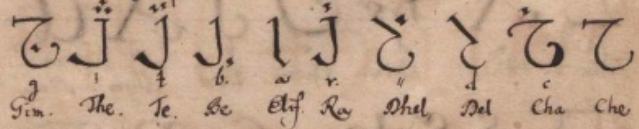 ج ث ت ب ا ر ذ د خ ح
g t b. a r. d c
Gim. The. Te. Be Elif. Ra Dhel Del Cha Che